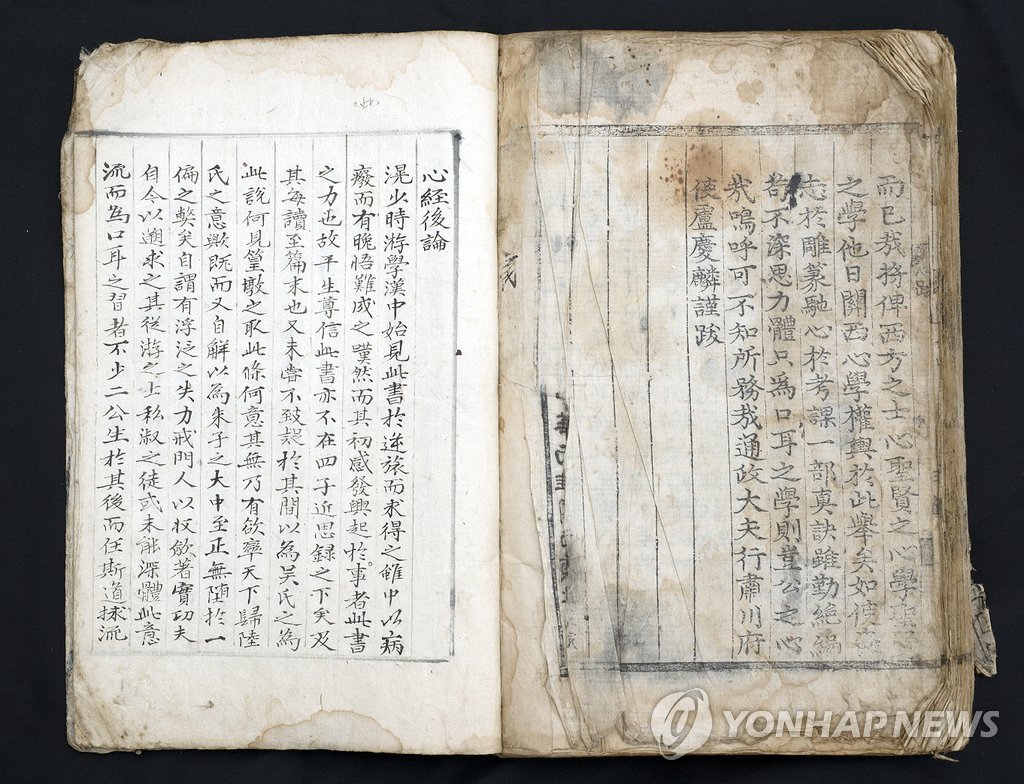 而已哉將俾西方之士心聖賢之心學
之學他日關西心學權輿於此舉矣如使
志於雕篆馳心於考課一部真訣雖勤絶編
苟不深思力體只爲口耳之學則章公之心
哉嗚呼可不知所務哉通政大夫行肅川府
使盧慶麟謹跋
心經後論
滉少時游學漢中始見此書於逆旅而求得之雖中以病
廢而有晚悟難成之嘆然而其初感發興起於事者此書
之力也故平生尊信此書亦不在四子近思錄之下矣及
其每讀至篇末也又未嘗不致疑於其間以為吳氏之為
此說何見篁墩之取此條何意其無乃有欲率天下歸陸
氏之意歟旣而又自解以為朱子之大中至正無隨於一
偏之弊矣自謂有浮泛之失力戒門人以收斂著實功夫
自今以遡求之其從游之士私淑之徒或未能深體此意
流而為口耳之習者不少二公生於其後而任斯道捄流
YONHAP NEWS